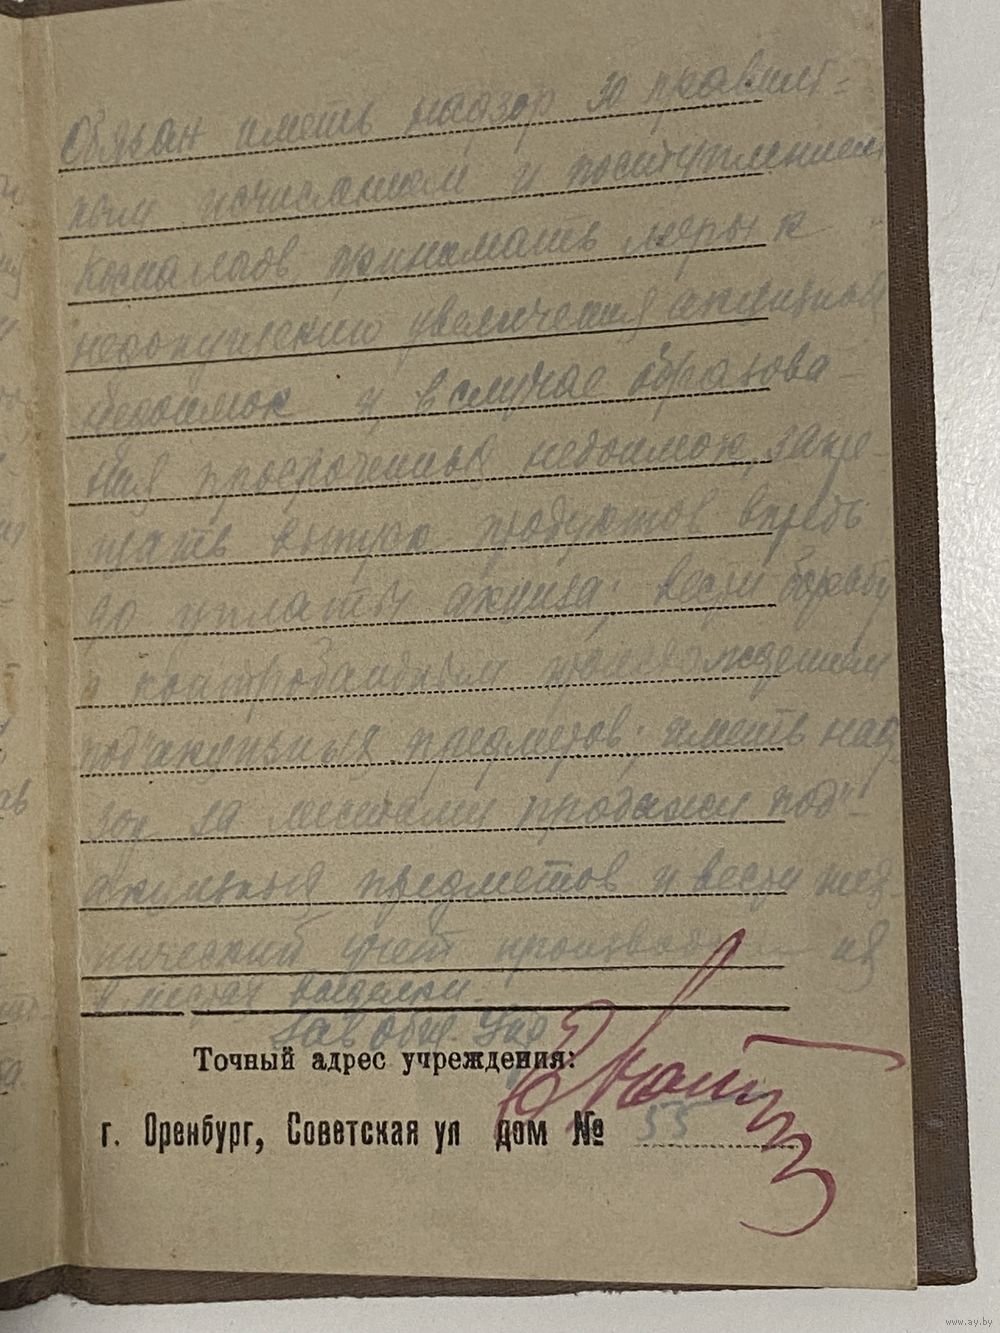 Обязан иметь надзор за правиль-
ным исчислением и поступлением
принимать меры к
недопущению увеличения акцизных
недоимок и в случае образова-
ния просроченных недоимок,
выпуск продуктов впредь
до уплаты акциза; вести борьбу
с контрабандным
подакцизных предметов; иметь над-
зор за местами продажи под-
акцизных предметов и вести тех-
нический учет
в местах выделки.
Точный адрес учреждения:
г. Оренбург, Советская ул дом № 55
www.ay.by